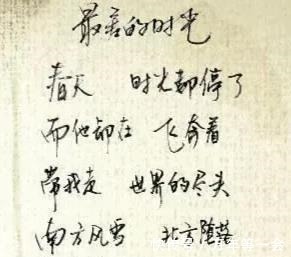 最害的时光
春天 时光却停了
而他却在 飞奔着
带我走 世界的尽头
南方风雪 北方坠落